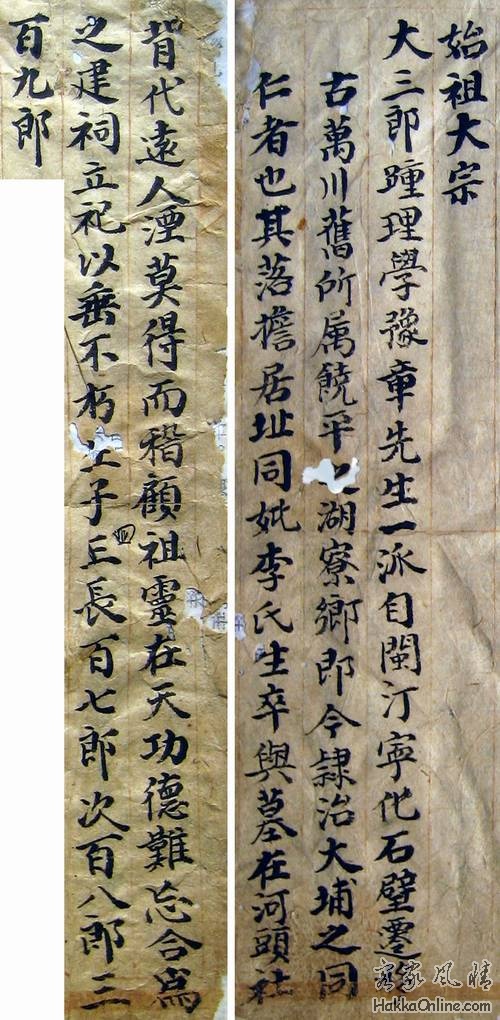 始祖大宗
大三郎踵理學豫章先生一派自閩汀寧化石壁遷
古萬川舊所属饒平之湖寮鄉即今隸治大埔之同
仁者也其落擔居址同妣李氏生卒與墓在河頭社
背代遠人湮莫得而稽顧祖靈在天功德難忘合爲
之建祠立祀以垂不朽生子三長百七郎次百八郎三
四
百九郎
客家風情
HakkaOnline.com